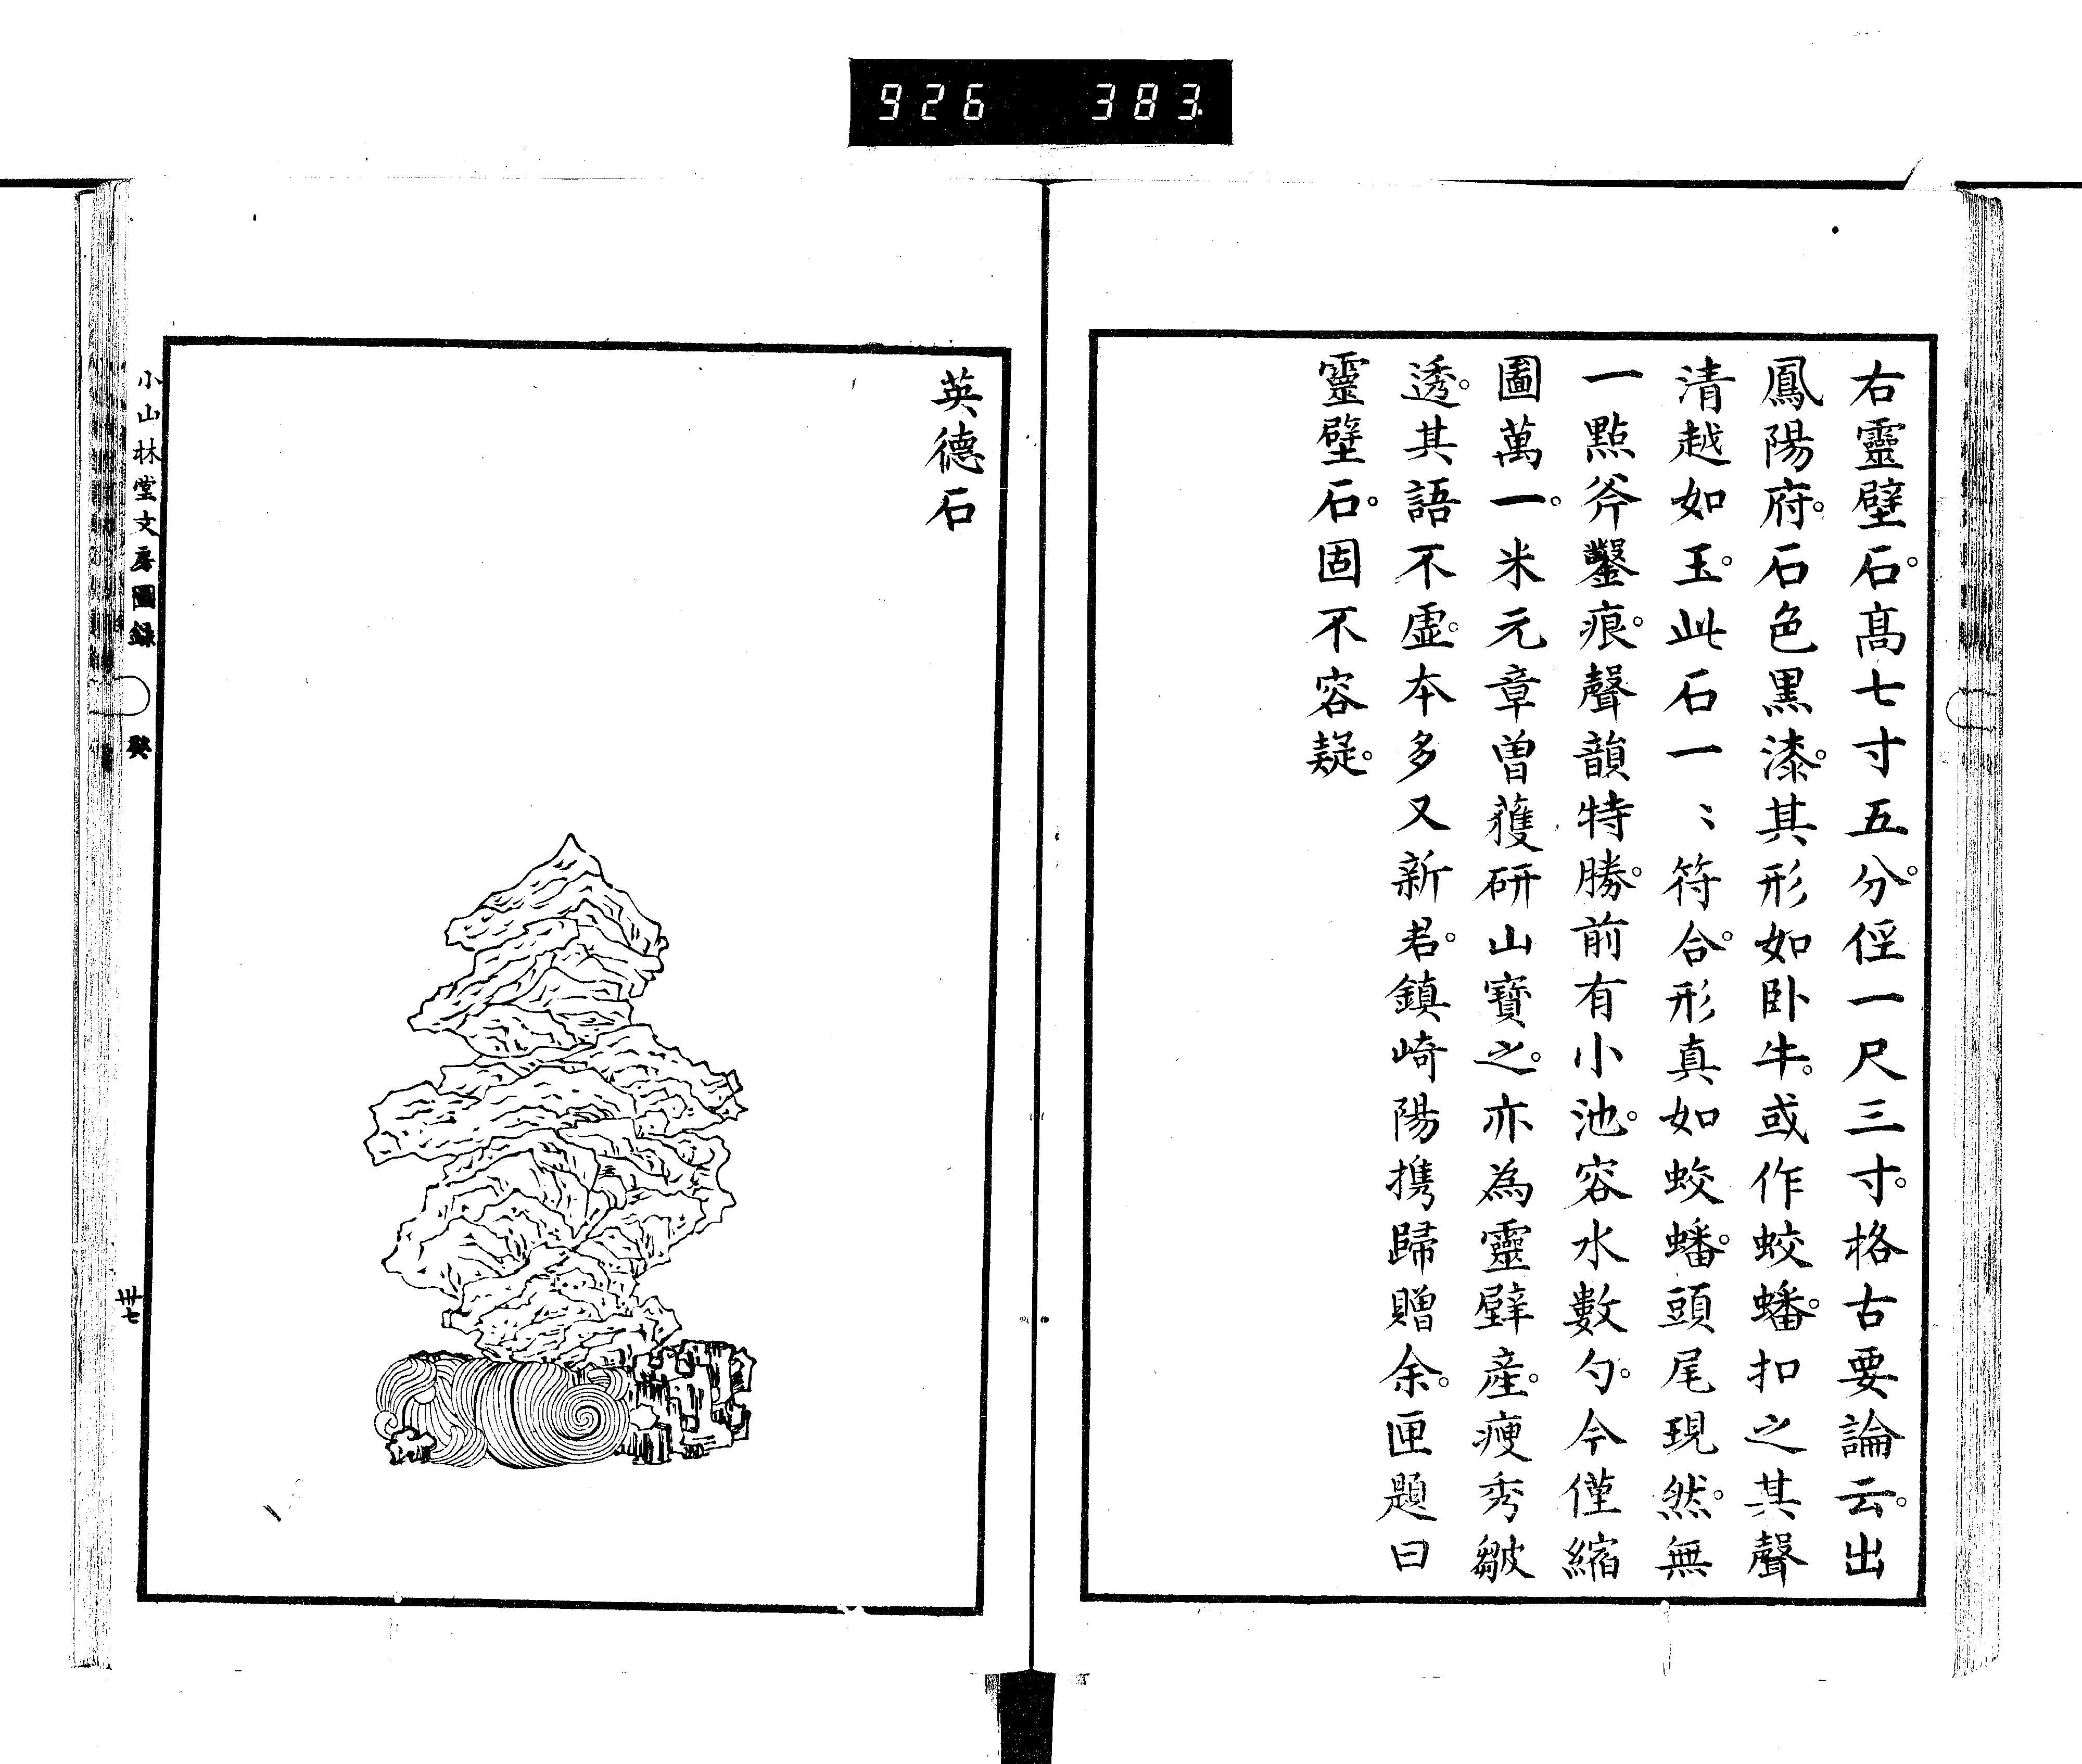 926 383
右靈璧石。高七寸五分。徑一尺三寸。格古要論云。出
鳳陽府。石色黑漆。其形如卧牛。或作蛟蟠。扣之其聲
清越如玉。此石一〻符合。形真如蛟蟠。頭尾現然。無
一點斧鑿痕。聲韻特勝。前有小池。容水數勺。今僅縮
圖萬一。米元章曽獲研山寶之。亦為靈璧產。瘦秀皺
透。其語不虛。本多又新君。鎮崎陽携歸贈余。匣題曰
靈璧石。固不容疑。
英德石
小山林堂文房圖錄 癸 卅七